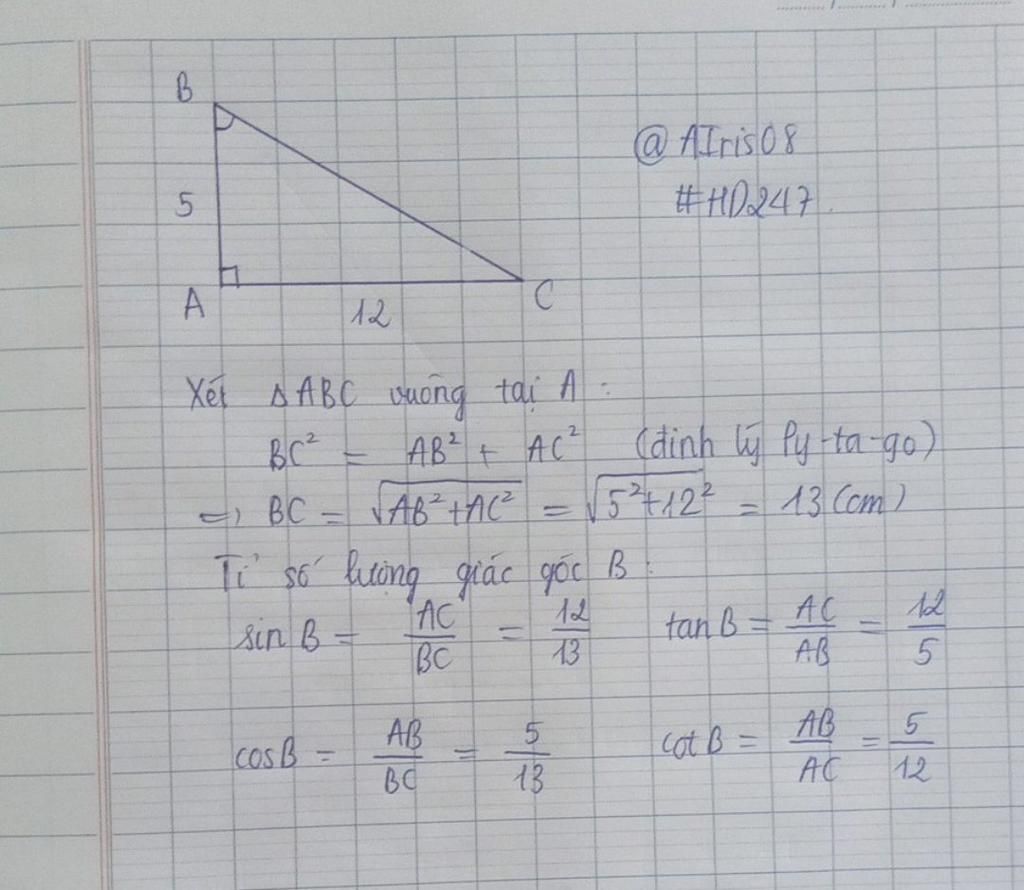 B
@AIris08
5
#HD247
A
12
C
Xét ΔABC vuông tại A :
BC² = AB² + AC² (định lý Py-ta-go)
=> BC = √AB²+AC² = √5²+12² = 13 (cm)
Tỉ số lượng giác góc B :
sin B = AC/BC = 12/13 tan B = AC/AB = 12/5
cos B = AB/BC = 5/13 cot B = AB/AC = 5/12